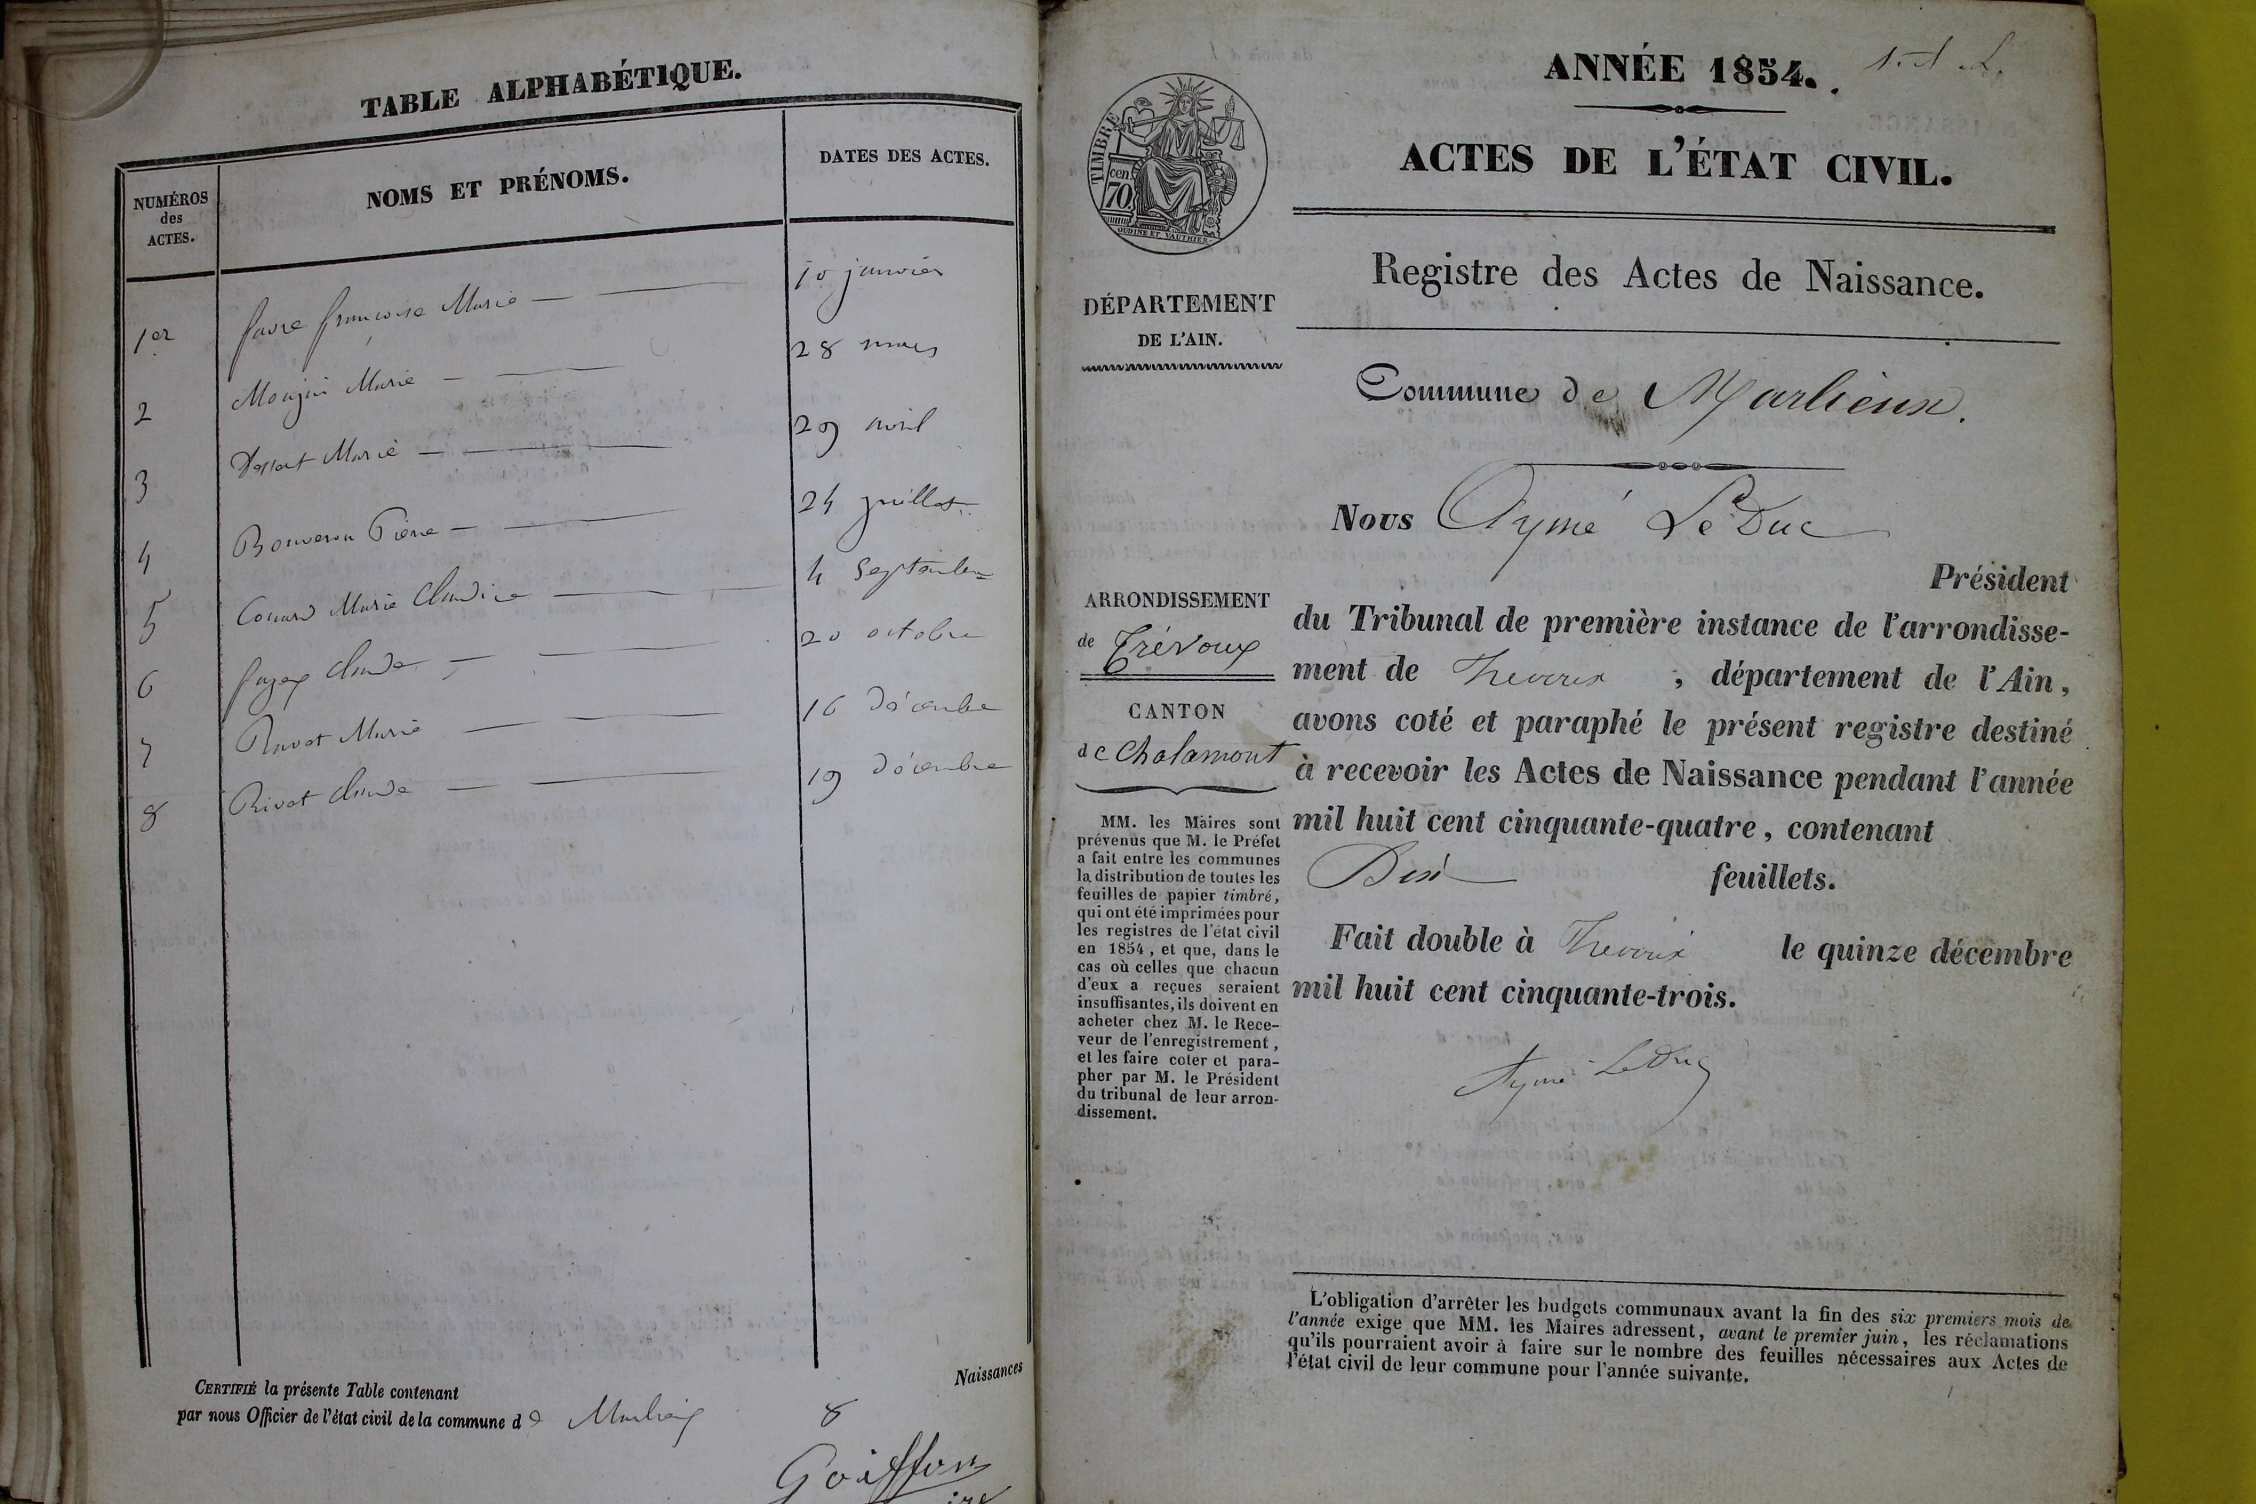 TABLE ALPHABÉTIQUE.
NUMÉROS
des
ACTES.
NOMS ET PRÉNOMS.
DATES DES ACTES.
1er favre françoise Marie 10 janvier
2 Monjin Marie 28 mars
3 Marie 29 avril
4 Bouveron Pierre 24 juillet
5 Couard Marie Claudine 4 Septembre
6 Claude 20 octobre
7 Ravat Marie 16 Décembre
8 Rivat Claude 19 Décembre
Naissances
CERTIFIÉ la présente Table contenant
par nous Officier de l'état civil de la commune de Marlieux 8
Goiffon
ANNÉE 1854.
ACTES DE L'ÉTAT CIVIL.
TIMBRE
70 cen.
OUDINE ET VAUTHIER
Registre des Actes de Naissance.
DÉPARTEMENT
DE L'AIN.
Commune de Marlieux.
Nous Aymé LeDuc
Président
du Tribunal de première instance de l'arrondisse-
ment de Trevoux ; département de l'Ain,
avons coté et paraphé le présent registre destiné
à recevoir les Actes de Naissance pendant l'année
mil huit cent cinquante-quatre, contenant
Dix feuillets.
Fait double à Trevoux le quinze décembre
mil huit cent cinquante-trois.
Aymé LeDuc
ARRONDISSEMENT
de Trévoux
CANTON
de Chalamont
MM. les Maires sont
prévenus que M. le Préfet
a fait entre les communes
la distribution de toutes les
feuilles de papier timbré,
qui ont été imprimées pour
les registres de l'état civil
en 1854, et que, dans le
cas où celles que chacun
d'eux a reçues seraient
insuffisantes, ils doivent en
acheter chez M. le Rece-
veur de l'enregistrement,
et les faire coter et para-
pher par M. le Président
du tribunal de leur arron-
dissement.
L'obligation d'arrêter les budgets communaux avant la fin des six premiers mois de
l'année exige que MM. les Maires adressent, avant le premier juin, les réclamations
qu'ils pourraient avoir à faire sur le nombre des feuilles nécessaires aux Actes de
l'état civil de leur commune pour l'année suivante.